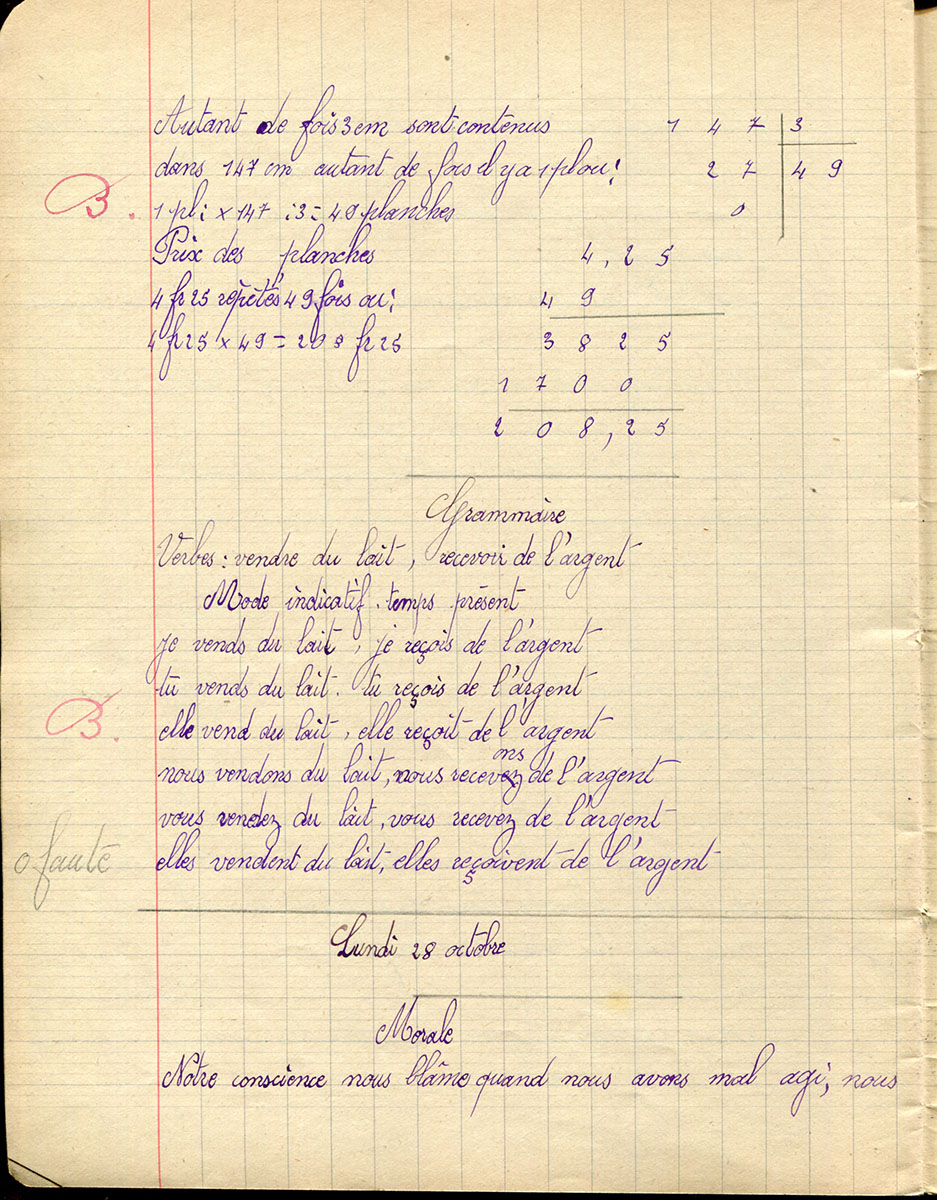 Autant de fois 3 cm sont contenus 1 4 7 3
dans 147 cm autant de fois il y a 1 pl ou : 2 7 4 9
B. 1 pl : x 147 : 3 = 49 planches 0
Prix des planches 4,25
4 fr 25 répétés 49 fois ou : 4 9
4 fr 25 x 49 = 208 fr 25 3 8 2 5
1 7 0 0
2 0 8,2 5
Grammaire
Verbes : vendre du lait, recevoir de l'argent
Mode indicatif. temps présent
je vends du lait, je reçois de l'argent
tu vends du lait. tu reçois de l'argent
B. elle vend du lait, elle reçoit de l'argent
ons
nous vendons du lait, nous recevez de l'argent
vous vendez du lait, vous recevez de l'argent
0 faute elles vendent du lait, elles reçoivent de l'argent
Lundi 28 octobre
Morale
Notre conscience nous blâme quand nous avons mal agi, nous